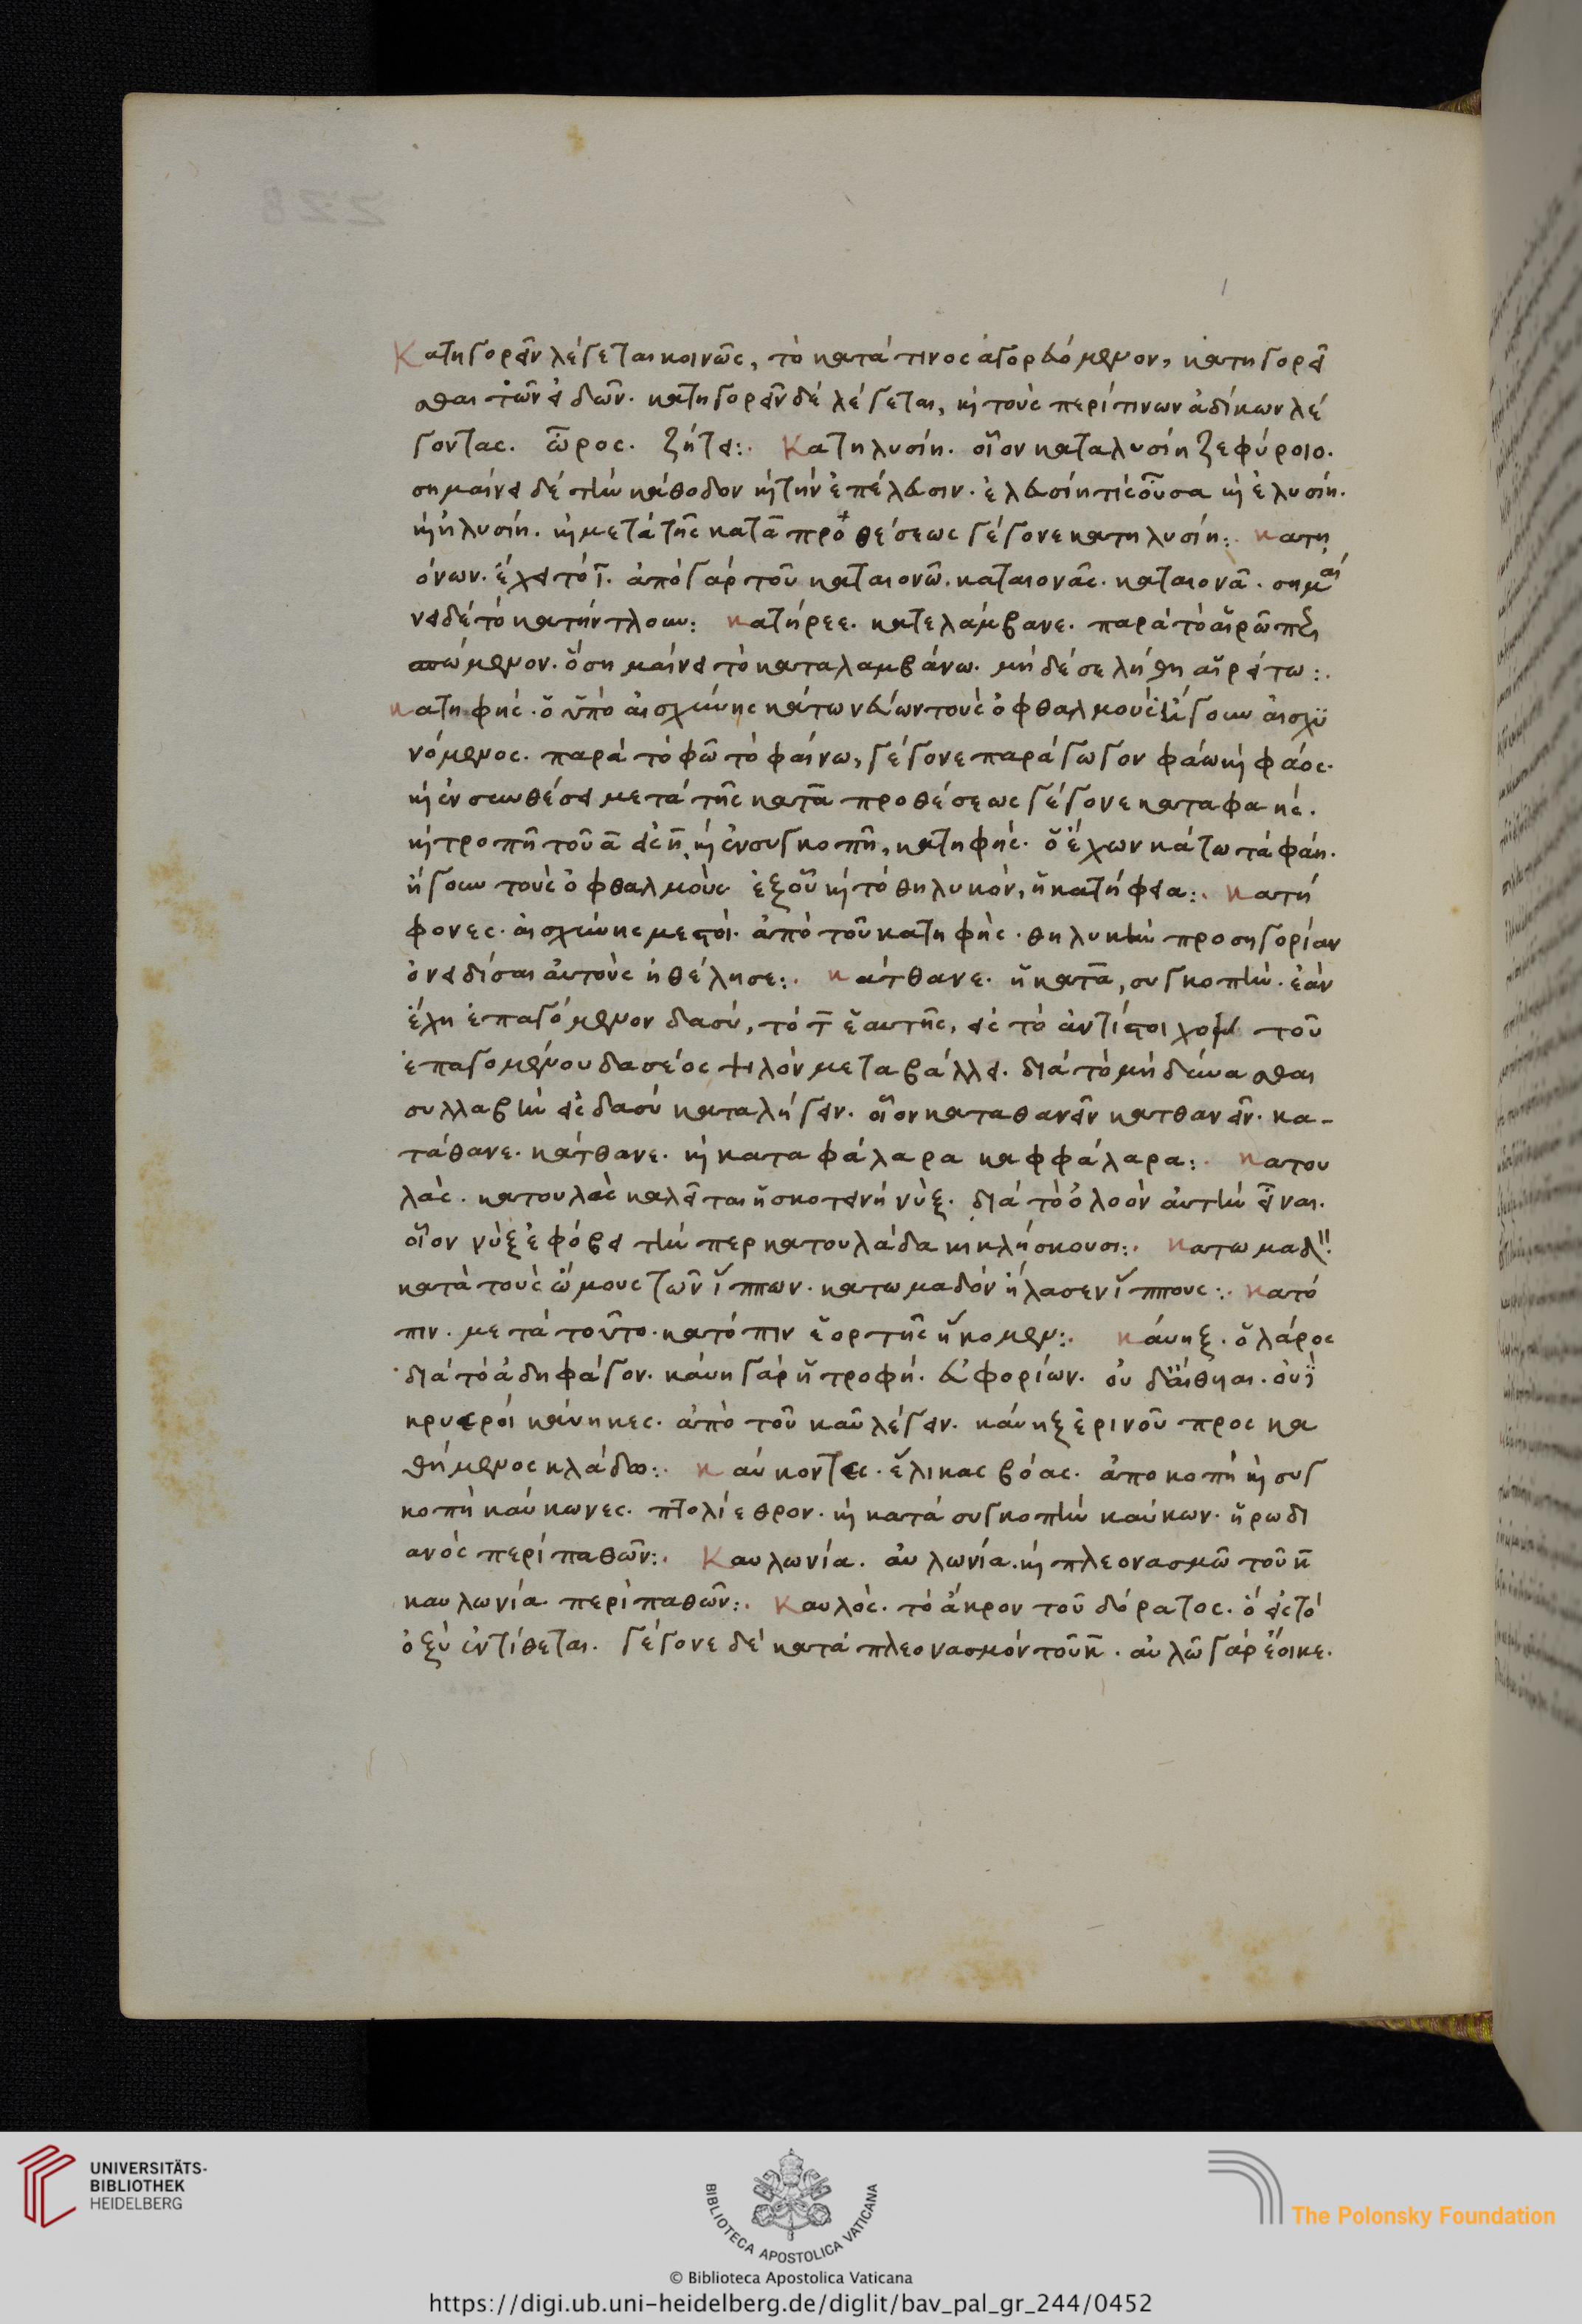 Κατηγορεῖν λέγεται κοινῶς, τὸ κατά τινος ἀγορευόμενον, κατηγορεῖ
σθαι τῶν εἰδῶν. κατηγορεῖν δὲ λέγεται, κὴ τοὺς περί τινων ἀδίκων λέ
γοντας. ὦρος. ζήτει:. Κατηλυσίη. οἷον καταλυσίη ζεφύροιο.
σημαίνει δὲ τὴν κάθοδον κὴ τὴν ἐπέλευσιν. ἐλευσίη τίς οὖσα κὴ ἐλυσίη.
κὴ ἠλυσίη. κὴ μετὰ τῆς κατα προθέσεως γέγονε κατηλυσίη:. κατη
όνων. ἔχει τὸ ῑ. ἀπὸ γὰρ τοῦ καταιονῶ. καταιονᾶς. καταιονᾶ. σημαί
νει δὲ τὸ κατήντλουν: κατήρεε. κατελάμβανε. παρὰ τὸ αἱρῶ
μενον. ὃ σημαίνει τὸ καταλαμβάνω. μηδέ σε λήθη αἱρείτω:.
κατηφής. ὁ ὑπὸ αἰσχύνης κάτω νεύων τοὺς ὀφθαλμοὺς ἤγουν αἰσχυ
νόμενος. παρὰ τὸ φῶ τὸ φαίνω, γέγονε παράγωγον φάω κὴ φάος.
κὴ ἐν συνθέσει μετὰ τῆς κατα προθέσεως γέγονε καταφαής.
κὴ τροπῇ τοῦ ᾱ εἰς η̄, κὴ ἐν συγκοπῇ, κατηφής. ὁ ἔχων κάτω τὰ φάη.
ἤγουν τοὺς ὀφθαλμοὺς ἐξ οὗ κὴ τὸ θηλυκὸν, ἡ κατήφεια:. κατή
φονες. αἰσχύνης μεστοί. ἀπὸ τοῦ κατηφής. θηλυκὴν προσηγορίαν
ὀνειδίσαι αὐτοὺς ἠθέλησε:. κάτθανε. ἡ κατα, συγκοπὴν. ἐὰν
ἔχη ἐπαγόμενον δασύ, τὸ τ̄ ἑαυτῆς, εἰς τὸ ἀντίστοιχον τοῦ
ἐπαγομένου δασέος ψιλὸν μεταβάλλει. διὰ τὸ μὴ δύνασθαι
συλλαβὴν εἰς δασὺ καταλήγειν. οἷον καταθανεῖν κατθανεῖν. κα-
τάθανε. κάτθανε. κὴ κατα φάλαρα καφφάλαρα:. κατου
λάς. κατουλὰς καλεῖται ἡ σκοτεινὴ νύξ. διὰ τὸ ὀλοὸν αὐτὴν εἶναι.
οἷον νὺξ ἐφόβει τήνπερ κατουλάδα κικλήσκουσι:. κατωμαδ".
κατὰ τοὺς ὤμους τῶν ἵππων. κατωμαδὸν ἤλασεν ἵππους:. κατό
πιν. μετὰ τοῦτο. κατόπιν ἑορτῆς ἥκομεν:. κάυηξ. ὁ λάρος
διὰ τὸ ἀδηφάγον. κάυη γὰρ ἡ τροφή. εὐφορίων.
κρυεροὶ κάυηκες. ἀπὸ τοῦ καῦ λέγειν. κάυηξ ἐρινοῦ προσκα
θήμενος κλάδω:. καύκοντες. ἕλικας βόας. ἀποκοπὴ κὴ συγ
κοπὴ καύκωνες. πτολίεθρον. κὴ κατὰ συγκοπὴν καύκων. ἡρωδι
ανὸς περὶ παθῶν:. Καυλωνία. αὐλωνία. κὴ πλεονασμῶ τοῦ κ̄
καυλωνία. περὶ παθῶν:. Καυλός. τὸ ἄκρον τοῦ δόρατος. ὃ εἰς τὸ
ὀξὺ ἐντίθεται. γέγονε δὲ κατὰ πλεονασμὸν τοῦ κ̄. αὐλῶ γὰρ ἔοικε.
UNIVERSITÄTS-
BIBLIOTHEK
HEIDELBERG
BIBLIOTECA APOSTOLICA VATICANA
The Polonsky Foundation
© Biblioteca Apostolica Vaticana
https://digi.ub.uni-heidelberg.de/diglit/bav_pal_gr_244/0452